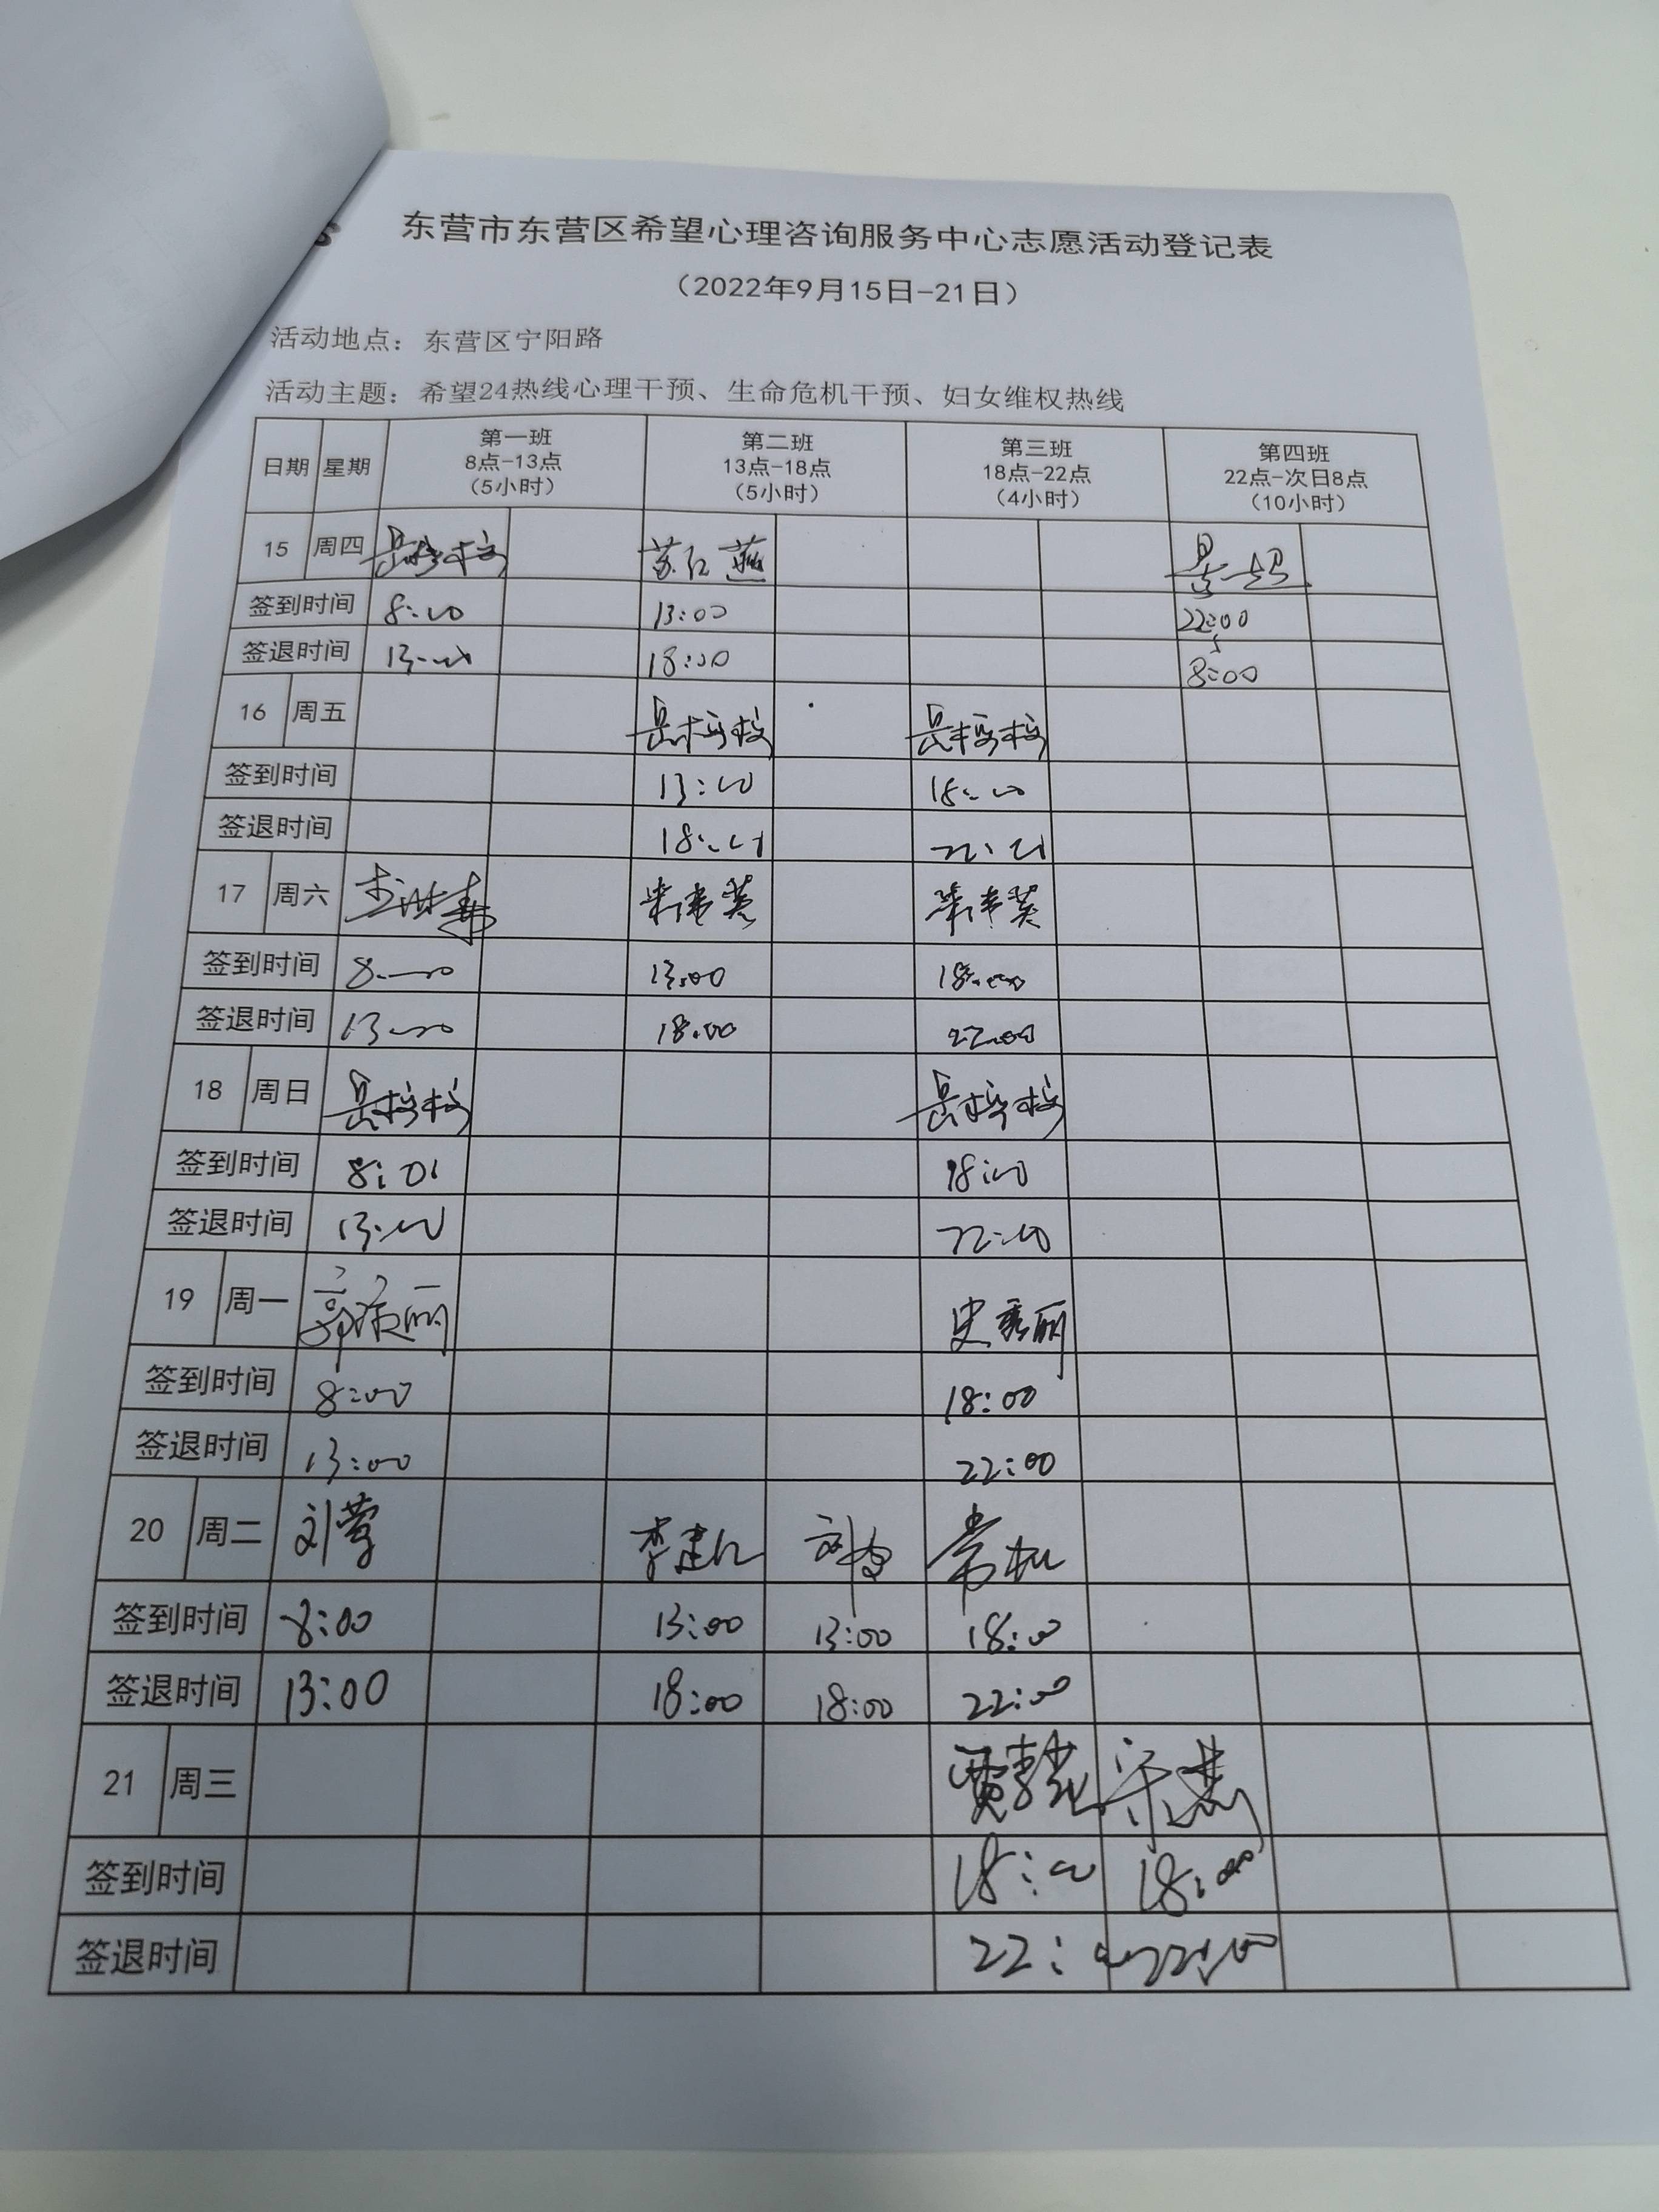 东营市东营区希望心理咨询服务中心志愿活动登记表
（2022年9月15日-21日）
活动地点：东营区宁阳路
活动主题：希望24热线心理干预、生命危机干预、妇女维权热线
日期 星期 第一班 8点-13点 （5小时） 第二班 13点-18点 （5小时） 第三班 18点-22点 （4小时） 第四班 22点-次日8点 （10小时）
15 周四 苏红燕
签到时间 8:00 13:00 22:00
签退时间 13:00 18:00 8:00
16 周五
签到时间 13:00 18:00
签退时间 18:01 22:01
17 周六
签到时间 8:00 13:00 18:00
签退时间 13:00 18:00 22:00
18 周日
签到时间 8:01 18:00
签退时间 13:00 22:00
19 周一 史秀丽
签到时间 8:00 18:00
签退时间 13:00 22:00
20 周二 刘莹 李建仁
签到时间 8:00 13:00 13:00 18:00
签退时间 13:00 18:00 18:00 22:00
21 周三
签到时间 18:00 18:00
签退时间 22:00 22:00